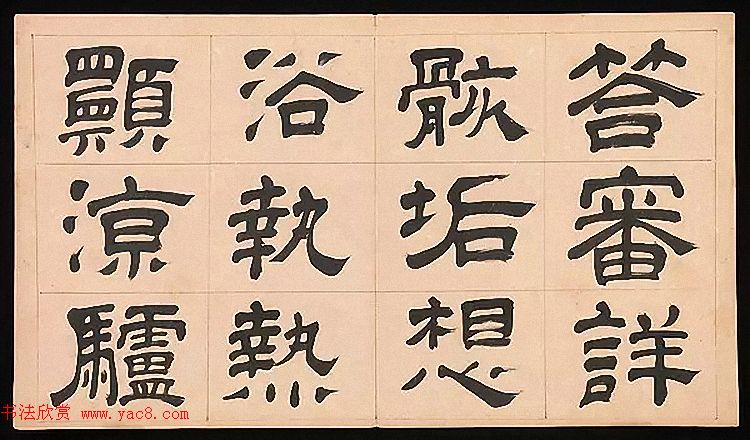 答審詳
骸垢想
浴執熱
顥涼驢
书法欣赏 www.yac8.com